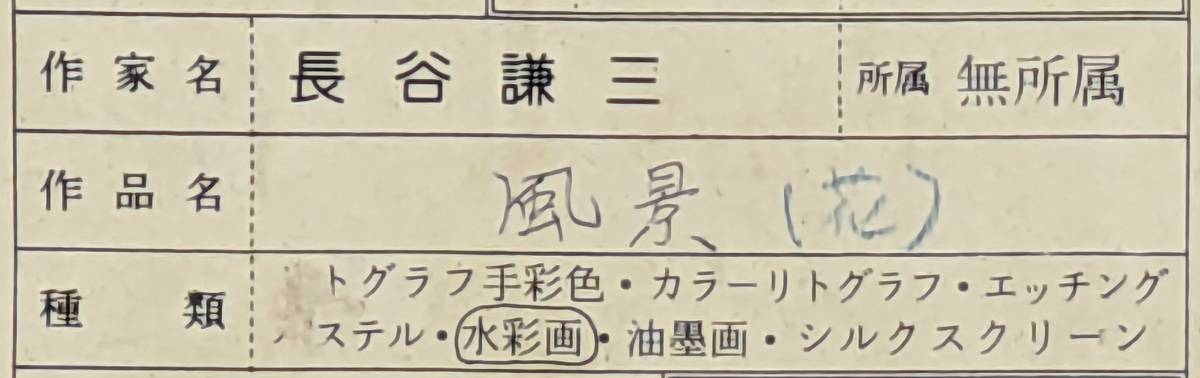 作家名 長谷謙三 所属 無所属
作品名 風景 (花)
種類 トグラフ手彩色・カラーリトグラフ・エッチング
ステル・水彩画・油墨画・シルクスクリーン